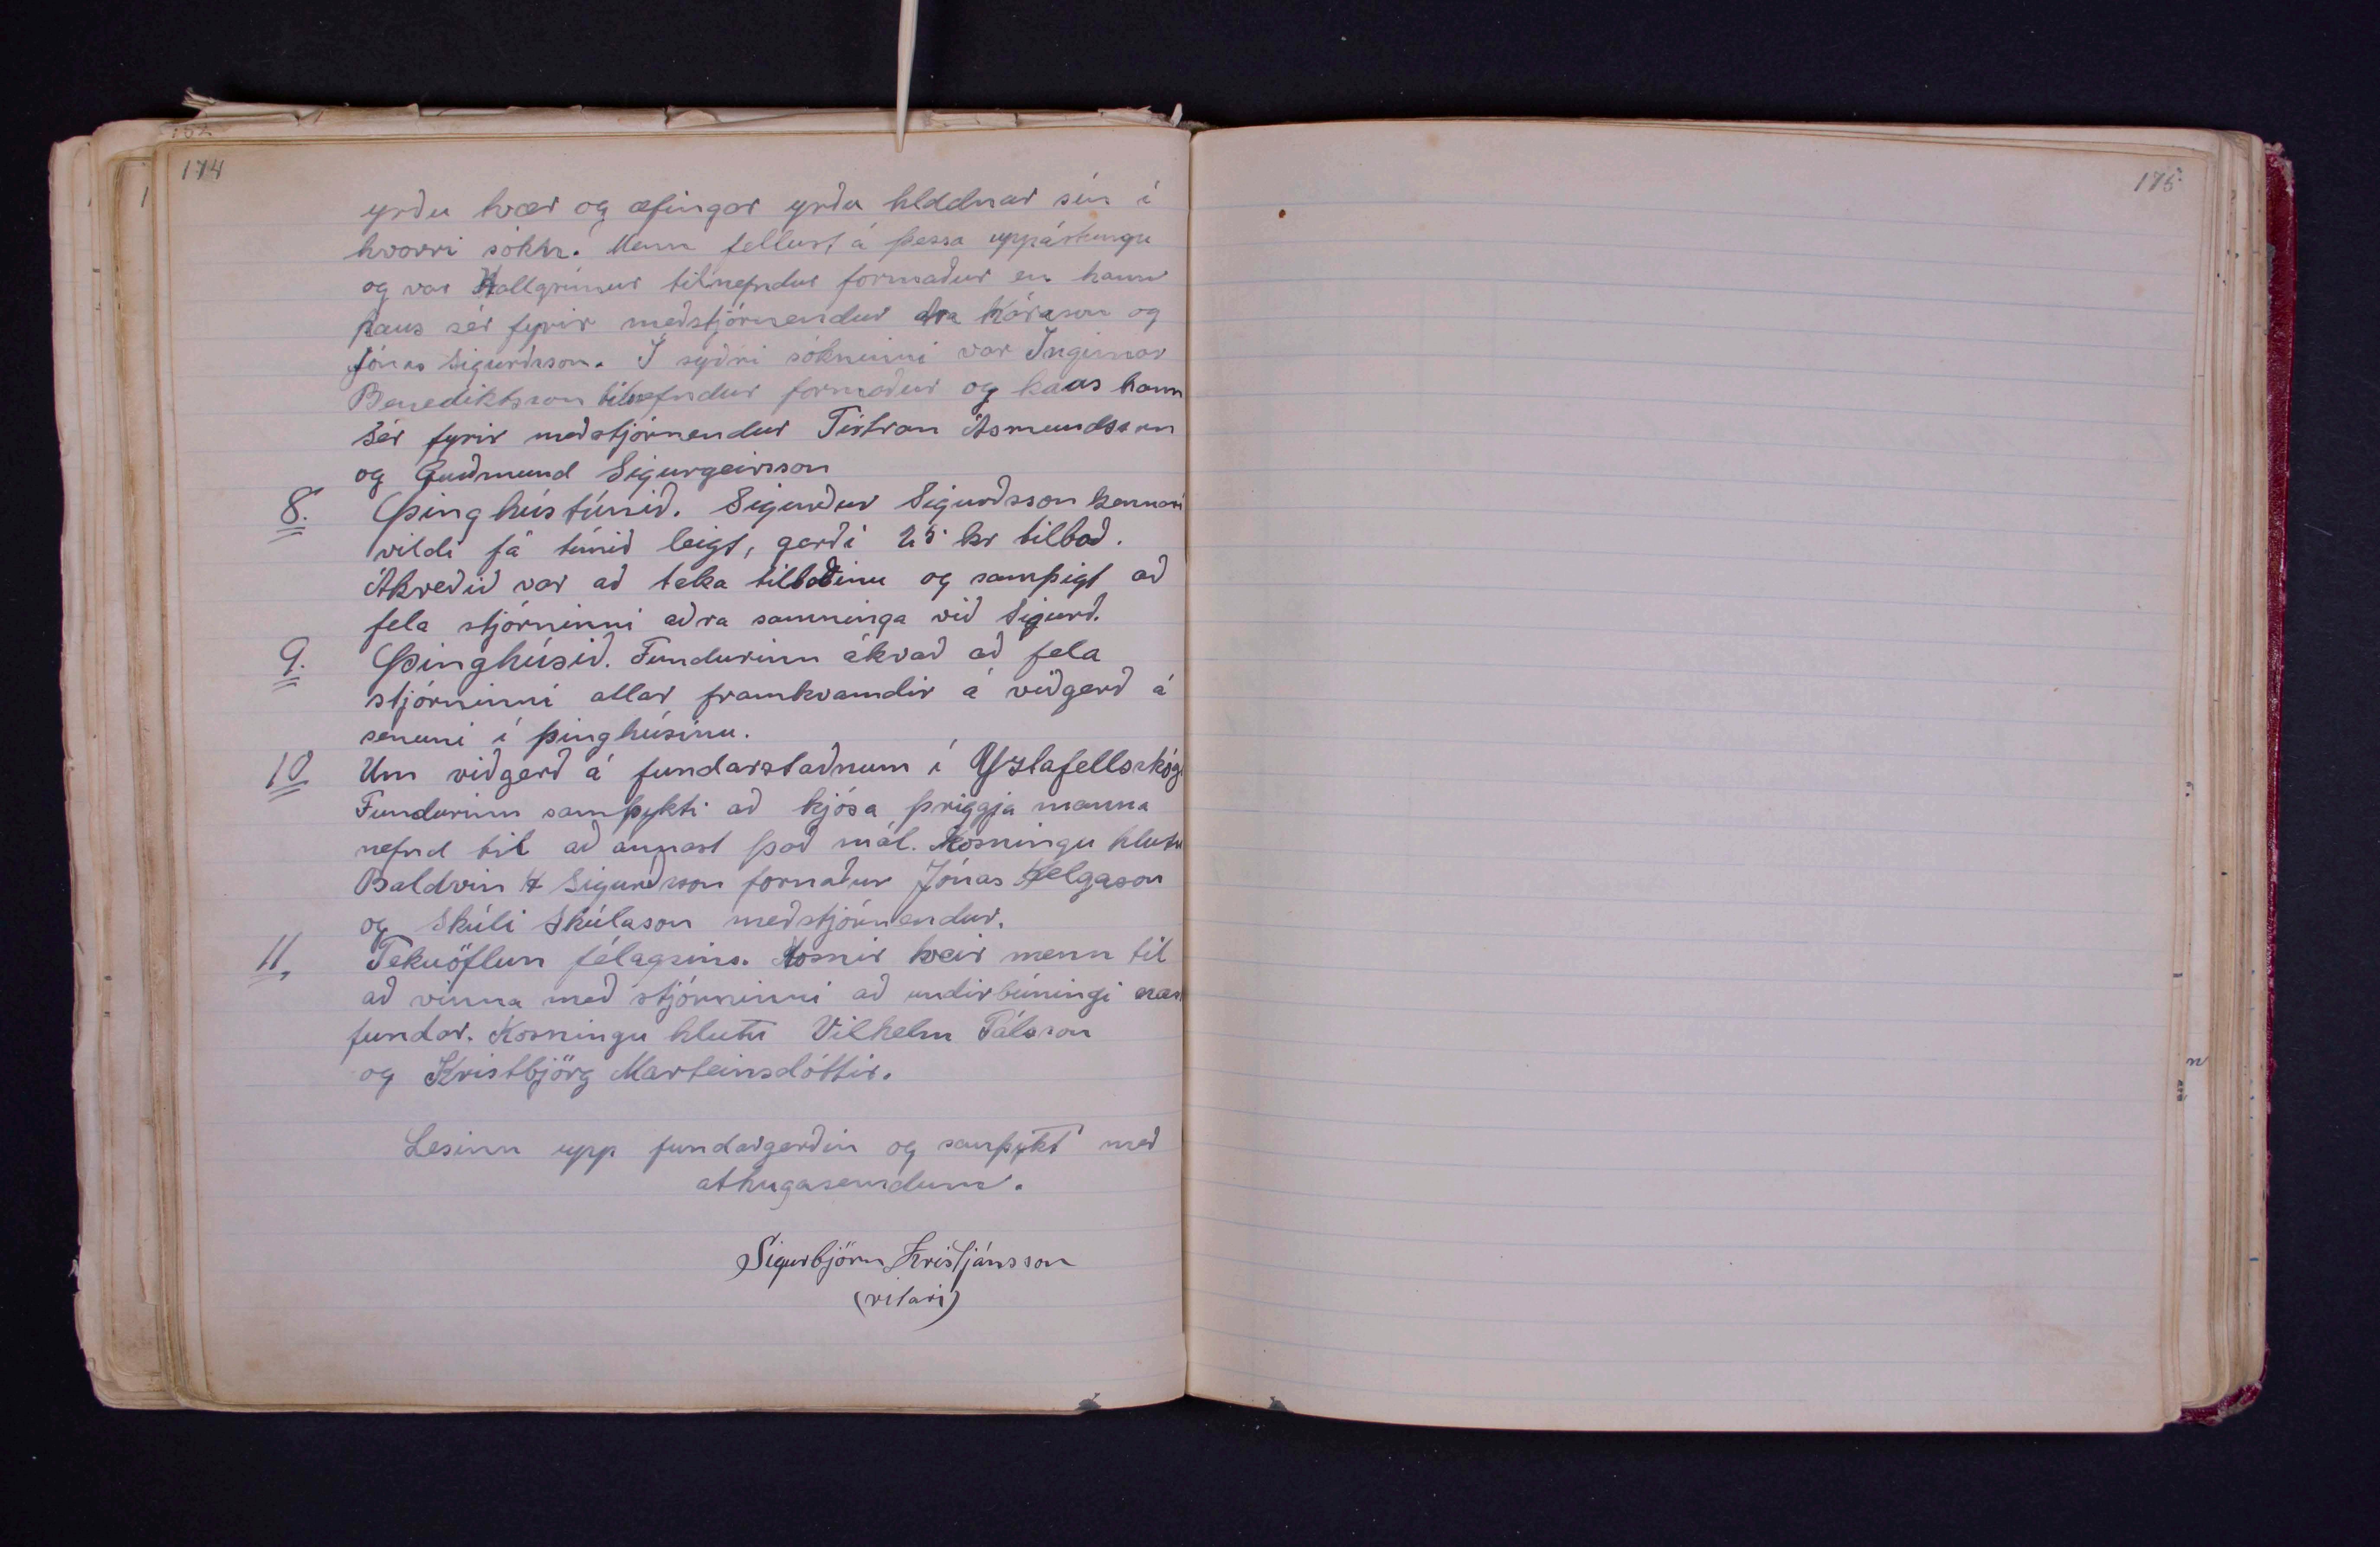 174
yrðu tvær og æfingar yrðu haldnar sín í
hvorri sókn. Menn fellust á þessa uppástungu
og var Hallgrímur tilnefndur formaður en hann
kaus sér fyrir meðstjórnendur Ara Kárason og
Jónas Sigurðsson. Í syðri sókninni var Ingimar
Benediktsson tilnefndur formaður og kaus hann
sér fyrir meðstjórnendur Tistran Ásmundsson
og Guðmund Sigurgeirsson
8. Þinghústúnið. Sigurður Sigurðsson kennari
vildi fá túnið leigt, gerði 25 kr tilboð.
Ákveðið var að taka tilboðinu og samþigt að
fela stjórninni aðra samninga við Sigurð.
9. Þinghúsið. Fundurinn ákvað að fela
stjórninni allar framkvamdir á viðgerð á
senuni í þinghúsinu.
10 Um viðgerð á fundarstaðnum í Yztafellsskógi
Fundurinn samþykti að kjósa þriggja manna
nefnd til að annast það mál. Kosningu hlutu
Baldvin Sigurðsson formaður Jónas Helgason
og Skúli Skúlason meðstjórnendur.
11, Tekuöflun félagsins. Kosnir tveir menn til
að vinna með stjórninni að undirbúningi
fundar. Kosningu hlutu Vilhelm Pálsson
og Kristbjörg Marteinsdóttir.
Lesinn upp fundargerðin og samþykt með
athugasemdum.
Sigurbjörn Kristjánsson
(ritari)
175